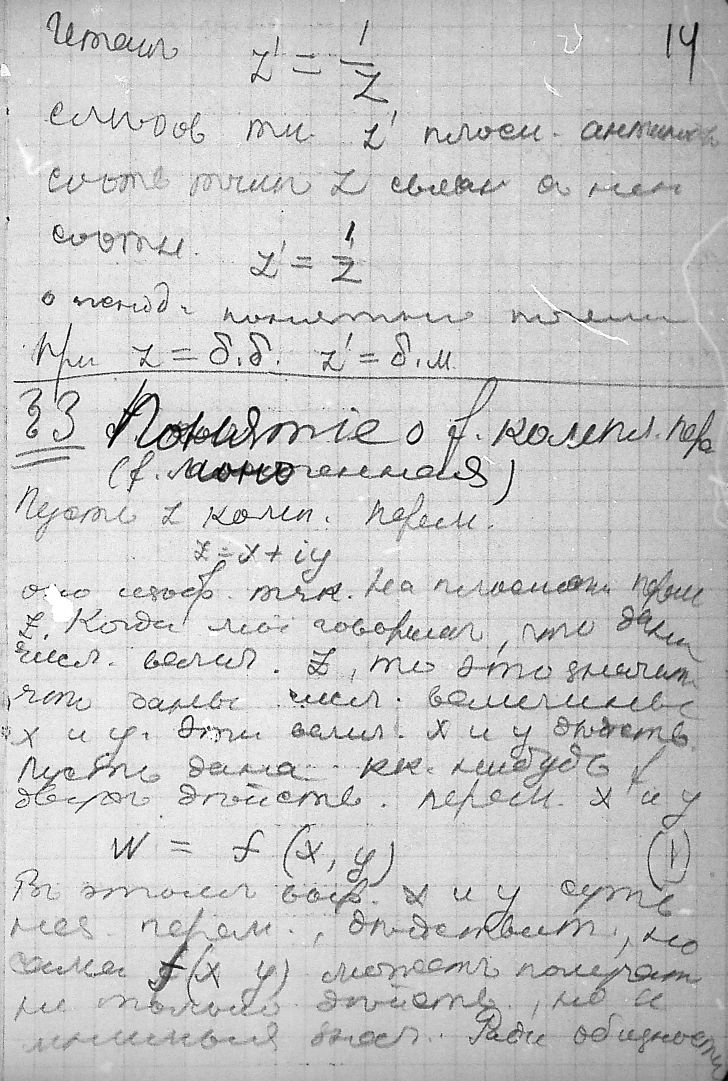 Итакъ z' = 1/z 14
следов тч. z' плоск.
соотв точки z связан с ней
соотн. z' = 1/z
При z = б.б. z' = б.м.
§3 Понятіе о f. компл. пер
(f. моногенная)
Пусть z комп. перем.
z = x + iy
оно изобр. тчк. на плоскости перем
z. Когда мы говорим, что дана
числ. велич. z, то это значит
что даны числ. величины
x и y. Эти велич. x и y дѣйств.
Пусть дана кк. нибудь f
двухъ дѣйств. перем. x и y
W = f (x, y) (1)
Въ этомъ выр. x и y суть
нез. перем., дѣйствит., но
сама f (x y) можетъ получать
не только дѣйств., но и
мнимыя знач. Ради общности